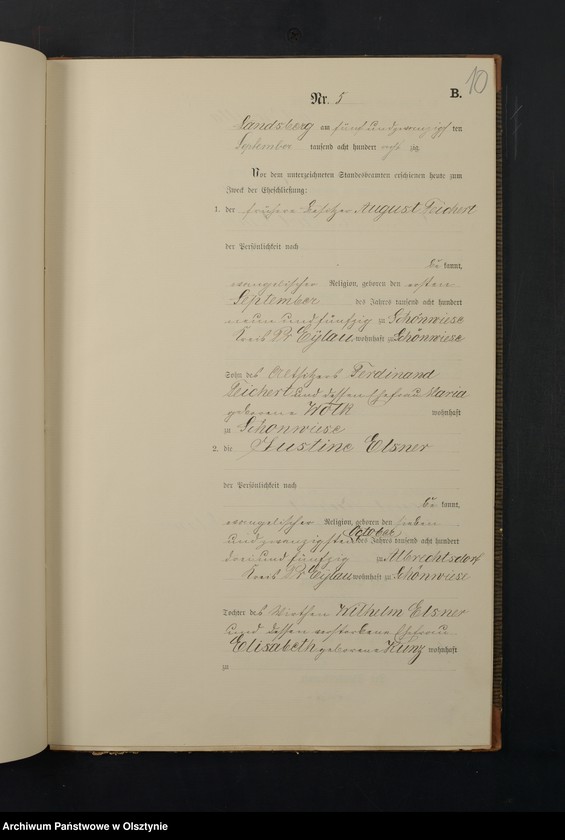 10
Nr. 5 B.
Landsberg am fünfundzwanzigsten
September tausend acht hundert acht zig
Vor dem unterzeichneten Standesbeamten erschienen heute zum
Zweck der Eheschließung:
1. der frühere Besitzer August Teichert
der Persönlichkeit nach
be kannt,
evangelischer Religion, geboren den ersten
September des Jahres tausend acht hundert
neun und fünfzig zu Schönwiese
Kreis Pr Eylau, wohnhaft zu Schönwiese
Sohn des Altsitzers Ferdinand
Teichert und dessen Ehefrau Maria
geborene Wolk wohnhaft
zu Schönwiese
2. die Justine Elsner
der Persönlichkeit nach
be kannt,
evangelischer Religion, geboren den sieben
und zwanzigsten October des Jahres tausend acht hundert
drei und fünfzig zu Albrechtsdorf
Kreis Pr Eylau wohnhaft zu Schönwiese
Tochter des Wirthen Wilhelm Elsner
und dessen verstorbene Ehefrau
Elisabeth geborene Kunz wohnhaft
zu
Archiwum Państwowe w Olsztynie